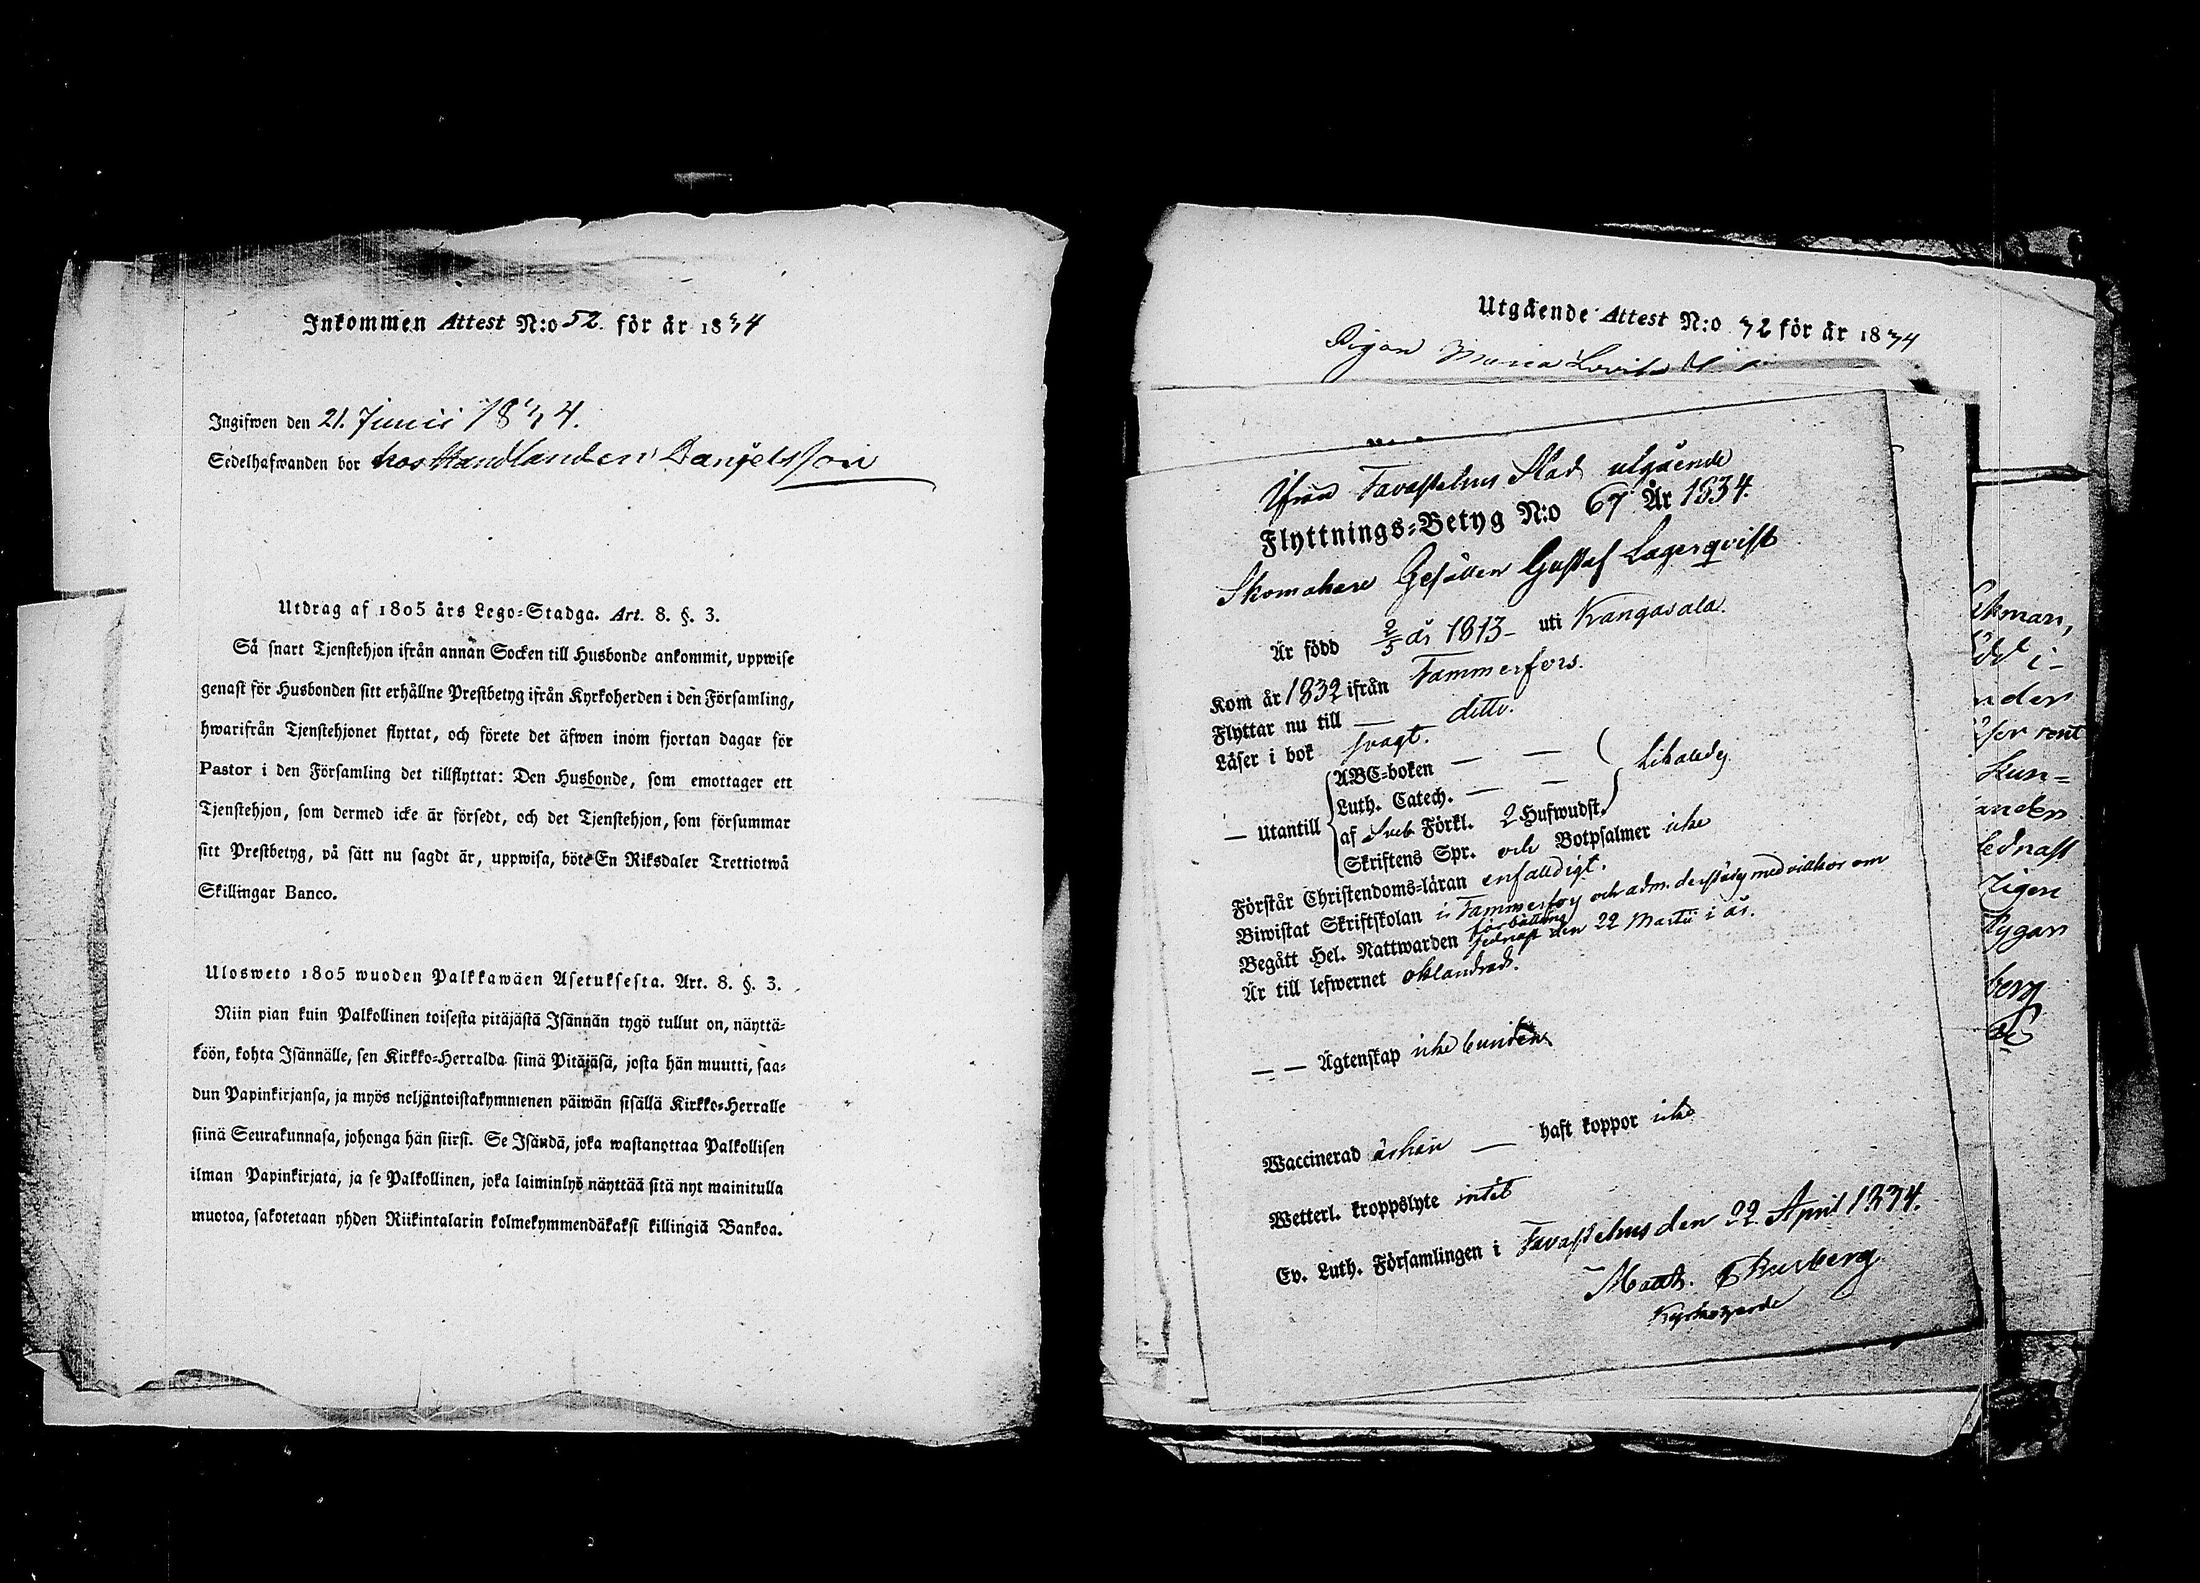 Inkommen Attest N:o 52. för år 1834
Ingifwen den 21. Junii 1834.
Sedelhafwanden bor hos Handlanden Danielsson
Utdrag af 1805 års Lego-Stadga. Art. 8. §. 3.
Så snart Tjenstehjon ifrån annan Socken till Husbonde ankommit, uppwise
genast för Husbonden sitt erhållne Prestbetyg ifrån Kyrkoherden i den Församling,
hwarifrån Tjenstehjonet flyttat, och förete det äfwen inom fjortan dagar för
Pastor i den Församling det tillflyttat: Den Husbonde, som emottager ett
Tjenstehjon, som dermed icke är försedt, och det Tjenstehjon, som försummar
sitt Prestbetyg, på sätt nu sagdt är, uppwisa, böte En Riksdaler Trettiotwå
Skillingar Banco.
Ulosweto 1805 wuoden Palkkawäen Asetuksesta. Art. 8. §. 3.
Niin pian kuin Palkollinen toisesta pitäjästä Isännän tygö tullut on, näyttä-
köön, kohta Isännälle, sen Kirkko-Herralda siinä Pitäjäsä, josta hän muutti, saa-
dun Papinkirjansa, ja myös neljäntoistakymmenen päiwän sisällä Kirkko-Herralle
siinä Seurakunnasa, johonga hän siirsi. Se Isändä, joka wastanottaa Palkollisen
ilman Papinkirjata, ja se Palkollinen, joka laiminlyö näyttää sitä nyt mainitulla
muotoa, sakotetaan yhden Riikintalarin kolmekymmendäkaksi killingiä Bankoa.
Utgående Attest N:o 32 för år 1834
Pigan Maria Lovisa
Ifrån Tavastehus Stad utgående
Flyttnings-Betyg N:o 67 År 1834.
Skomakare Gesällen Gustaf Lagerqvist
Är född 2/5 år 1813 - uti Kangasala.
Kom år 1832 ifrån Tammerfors.
Flyttar nu till — ditto.
Läser i bok svagt.
ABC-boken — —
— Utantill Luth. Catech. — — likaledes
af Sveb. Förkl. 2 Hufwudst.
Skriftens Spr. och Botpsalmer icke
Förstår Christendoms-läran enfaldigt.
Biwistat Skriftskolan i Tammerfors och adm. derstädes med villkor om
förbättring
Begått Hel. Nattwarden sednast den 22 Martii i år.
Är till lefwernet oklandrad.
— — Ägtenskap icke bunden
Waccinerad århån — haft koppor icke
Wetterl. kroppslyte intet
Ev. Luth. Församlingen i Tavastehus den 22 April 1834.
Math. Åkerberg
Kyrkoherde
ekman,
i -
nder
kun=
anden
sednast
Pigan
berg